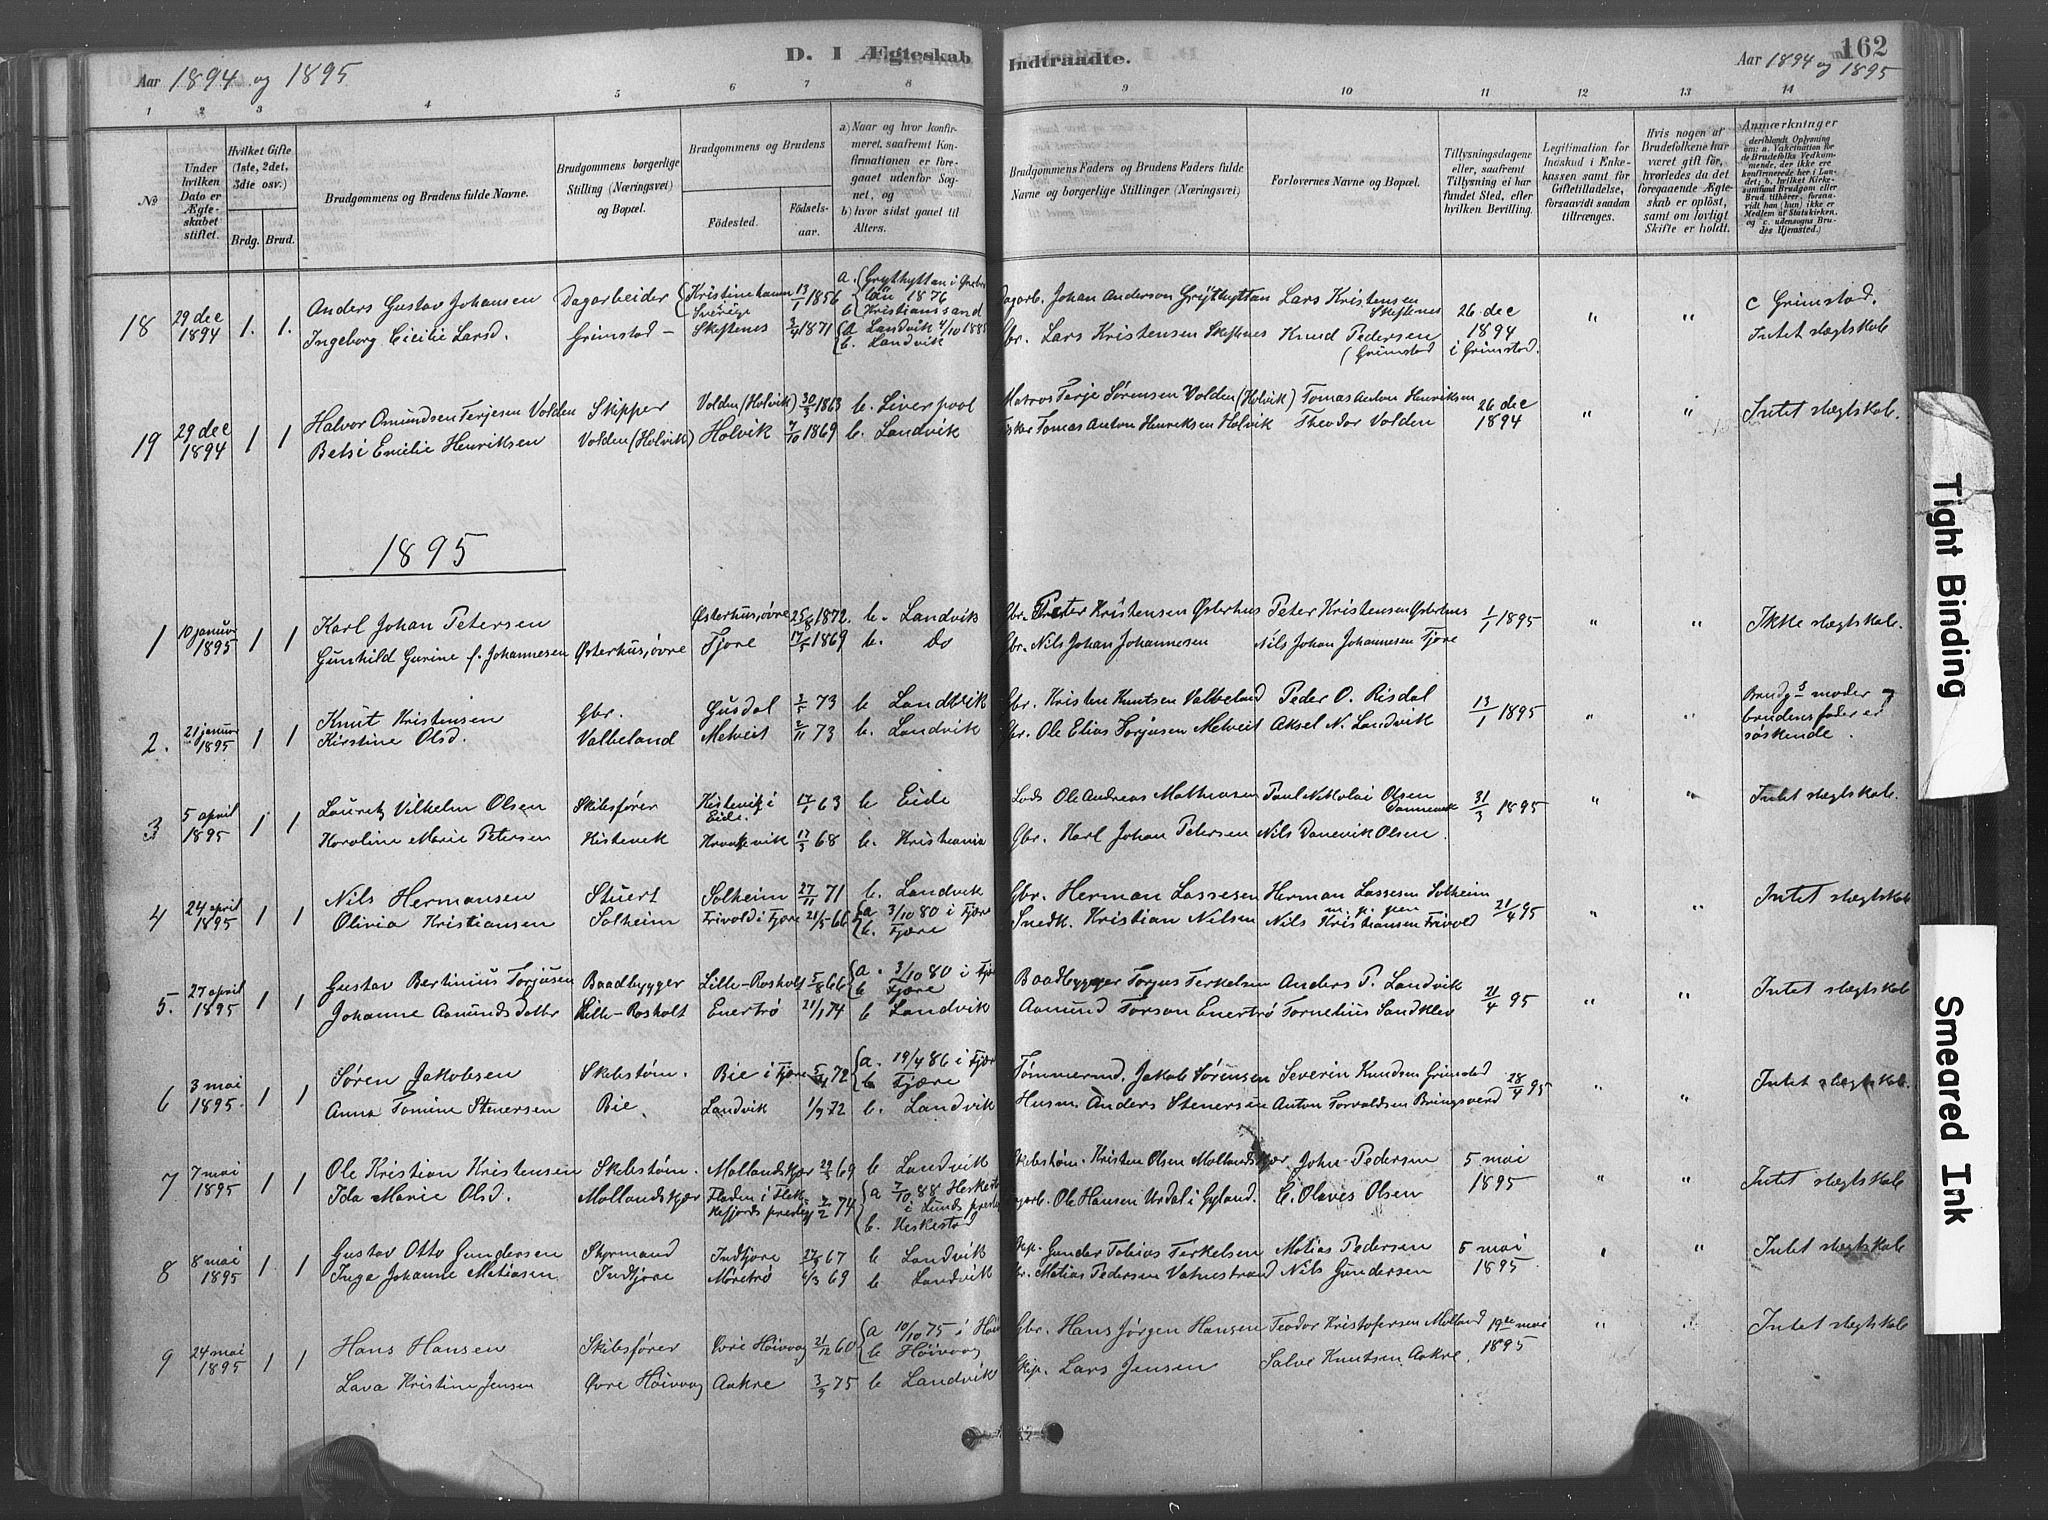 D. I Ægteskab Indtraadte.
162
Aar 1894 og 1895
Aar 1894 og 1895
1 2 3 4 5 6 7 8 9 10 11 12 13 14
No
Under hvilken Dato er Ægteskabet stiftet.
Hvilket Gifte (1ste, 2det, 3die osv.)
Brdg. Brud.
Brudgommens og Brudens fulde Navne.
Brudgommens borgerlige Stilling (Næringsvei) og Bopæl.
Brudgommens og Brudens
Fødested.
Fødselsaar.
a) Naar og hvor konfirmeret, saafremt Konfirmationen er foregaaet udenfor Sognet, og
b) hvor sidst gaaet til Alters.
Brudgommens Faders og Brudens Faders fulde Navne og borgerlige Stillinger (Næringsvei)
Forlovernes Navne og Bopæl.
Tillysningsdagene eller, saafremt Tillysning ei har fundet Sted, efter hvilken Bevilling.
Legitimation for Indskud i Enkekassen samt for Giftetilladelse, forsaavidt saadan tiltrænges.
Hvis nogen af Brudefolkene har været gift før, hvorledes da det foregaaende Ægteskab er opløst, samt om lovligt Skifte er holdt.
Anmærkninger
(deriblandt Oplysning om: a. Vakcination for de Brudefolks Vedkommende, der ikke ere konfirmerede her i Landet; b. hvilket Kirkesamfund Brudgom eller Brud tilhører, forsaavidt han (hun) ikke er Medlem af Statskirken, og c. udensogns Brudes Hjemsted.)
18 29 dec 1894 1. 1. Anders Gustav Johansen Dagarbeider Kristinehamn Sverige 13/1 1856 a. Grythyttan i Ørebro län 1876 b. Kristianssand Dagarb. Johan Anderson Grÿthyttan Lars Kristensen Skeftenes 26 dec 1894 i Grimstad. " " c Grimstad. Intet slegtskab
Ingeborg Cicilie Larsd. Grimstad – Skeftenes 3/4 1871 a Landvik 4/10 1885 b. Landvik Gbr. Lars Kristensen Skeftnes Knud Pedersen (Grimstad
19 29 dec 1894 1 1 Halvor Omundsen Terjesen Volden Skipper Volden (Holvik) 30/5 1863 b. Liverpool Matros Terje Sørensen Volden (Holvik) Tomas Anton Henriksen 26 dec 1894 " " Intet slegtskab.
Betsi Emilie Henriksen Volden (Holvik) Holvik 7/10 1869 b. Landvik Fisker Tomas Anton Henriksen Holvik Theodor Volden
1895
1 10 januar 1895 1 1 Karl Johan Petersen Østerhus, øvre 25/8 1872. b. Landvik Gbr. Peter Kristensen Østerhus Peter Kristensen Østerhus 1/1 1895 " " Ikke slegtskab.
Gunhild Gurine f. Johannesen Østerhus, øvre Fjore 17/5 1869 b. Do Gbr. Nils Johan Johannesen Nils Johan Johannesen Fjore
2. 21 januar 1895 1 1 Knut Kristensen Gbr. Gusdal 3/5 73 b Landvik Gbr. Kristen Knutsen Valbeland Peder O. Risdal 13/1 1895 " " Brudg.s moder og brudens fader er søskende.
Kirstine Olsd. Valbeland Metveit 2/11 73 b. Landvik Gbr. Ole Elias Torjusen Metveit Aksel N. Landvik
3 5 april 1895 1 1 Lauretz Vilhelm Olsen Skibsfører Kistevik i Eide. 17/1 63 b Eide Lods Ole Andreas Matheasen Paul Nikolai Olsen Dannevik 31/3 1895 " " Intet slegtskab.
Karoline Marie Petersen Kistevik 17/3 68 b. Kristiania Gbr. Karl Johan Petersen Nils Danevik Olsen.
4 24 april 1895 1 1 Nils Hermansen Stuert Solheim 27/11 71 b. Landvik Gbr. Herman Lassesen Herman Lassesen Solheim m. p. pen 21/4 95 " " Intet slegtskab
Olivia Kristiansen Solheim Frivold i Fjære 21/5 66 a 3/10 80 i Fjære b. Fjære Snedk. Kristian Nilsen Nils Kristiansen Frivold
5. 27 april 1895 1 1 Gustav Bertinius Torjusen Baadbygger Lille-Rosholt 5/8 66 a. 3/10 80 i Fjære b Fjære Baadbygger Torjus Terkelsen Anders P. Landvik 21/4 95 " " Intet slegtskab
Johanne Aamunds dotter Lille-Rosholt Enertrø 21/1 74 b Landvik Aamund Torson Enertrø Tornelius Sandklev
6 3 mai 1895. 1 1 Søren Jakobsen Skibstøm. Bie i Fjære 5/4 72 a. 19/4 86 i Fjære b Fjære Tømmermd. Jakob Sørensen Severin Knudsen Grimstad 28/4 95 " " Intet slegtskab.
Anna Tomine Stenersen Bie. Landvik 1/9 72 b. Landvik Husm. Anders Stenersen Anton Torvaldsen Bringsverd
7 7 mai 1895 1 1 Ole Kristian Kristensen Skibstøm. Mollandskjær 29/5 69 b Landvik Skibstøm. Kristen Olsen Mollandskjær John Pedersen 5 mai 1895 " " Intet slegtskab
Ida Marie Olsd. Mollandskjær Fladen i Flekkefjords prestgj 7/2 74 a 7/10 88 Heskestad i Lunds prestgj b. Heskestad Dagarb. Ole Hansen Urdal i Gyland. C. Olaves Olsen
8 8 mai 1895 1. 1 Gustav Otto Gundersen Styrmand Indfjore 27/9 67 b Landvik Skp. Gunder Tobias Terkelsen Matias Pedersen 5 mai 1895 " " Intet slegtskab
Inga Johanne Matiasen Indfjore Moretrø 6/3 69 b Landvik Gbr. Matias Pedersen Vatnestrand Nils Gundersen
9 24 mai 1895 1 1 Hans Hansen Skibsfører Øvre Høivaag 21/12 60 a 10/10 75 i Høiv b Høivaag Gbr. Hans Jørgen Hansen Teodor Kristofersen Molland 19de mai 1895 " " Intet slegtskab
Lava Kristine Jensen Øvre Høivaag Aakre 3/9 75 b Landvik Skp. Lars Jensen Salve Knutsen Aakre.
Tight Binding
Smeared Ink